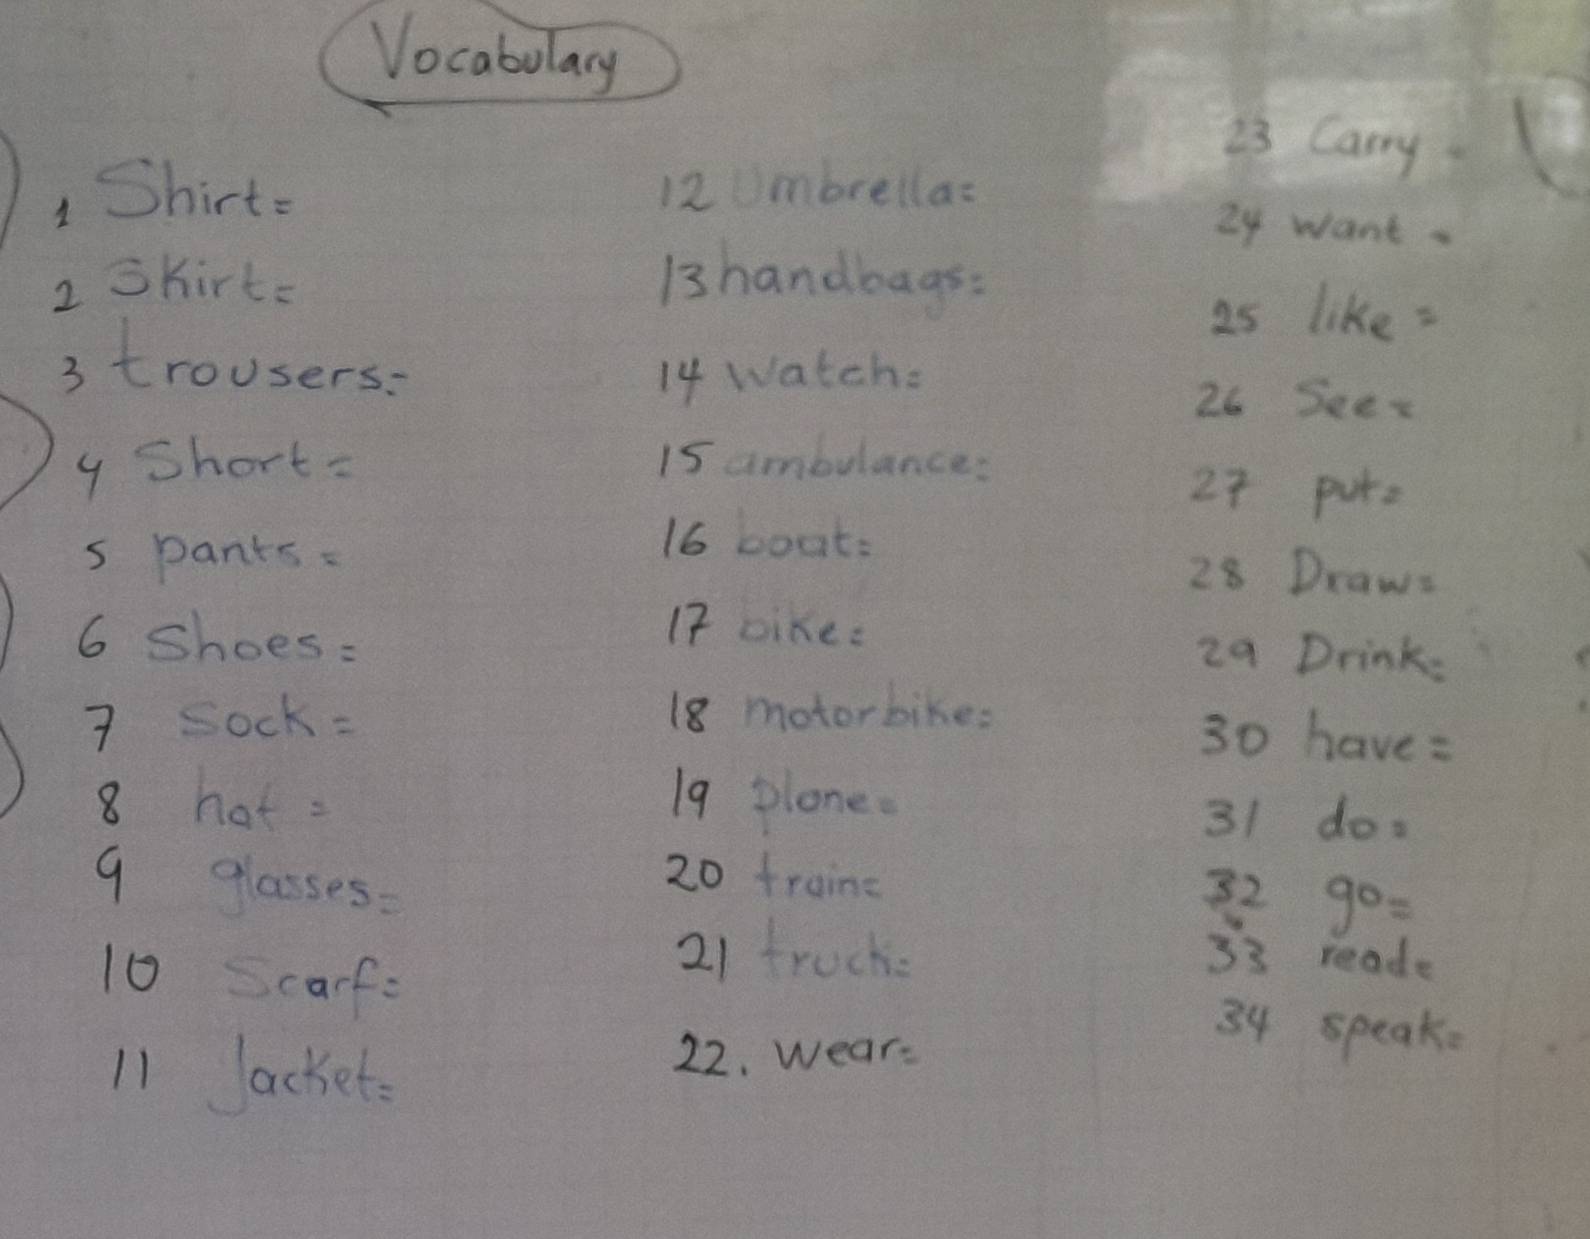 Vocabulary
1 Shirt=
2 Skirt=
3 trousers=
4 Short=
5 pants=
6 Shoes=
7 Sock=
8 hat=
9 glasses=
10 Scarf=
11 Jacket=
12 Umbrella=
13 handbags=
14 Watch=
15 ambulance=
16 boat=
17 bike=
18 motorbike=
19 plane=
20 train=
21 truck=
22. wear=
23 Carry=
24 want=
25 like=
26 See=
27 put=
28 Draw=
29 Drink=
30 have=
31 do=
32 go=
33 read=
34 speak=